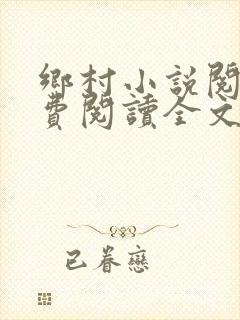 鄉村小說閱
費閱讀全文
已眷戀